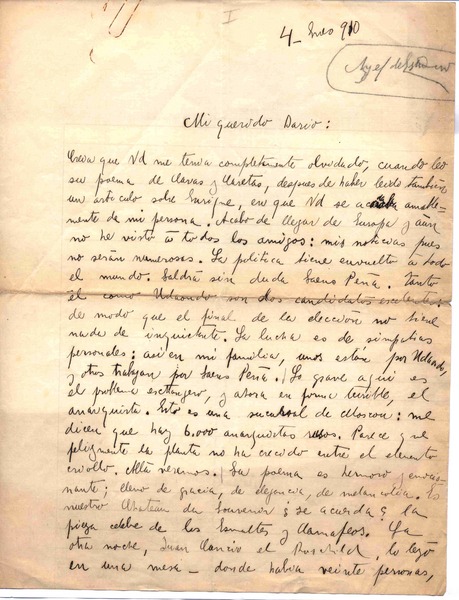 I
4 - Enero 910
Mi querido Dario:
Creia que Vd me tenia completamente olvidado, cuando leo
su poema de Caras y Caretas, despues de haber leido tambien
un articulo sobre Enrique, en que Vd se acordaba amable-
mente de mi persona. Acabo de llegar de Europa y aún
no he visto à todos los amigos: mis noticias pues
no serán numerosas. La politica tiene envuelto a todo
el mundo. Saldrá sin duda Saenz Peña. Tanto
él como Udaondo son dos candidatos excelentes
de modo que el final de la elección no tiene
nada de inquietante. La lucha es de simpatias
personales: asi en mi familia, unos están por Udaondo,
y otros trabajan por Saenz Peña. Lo grave aqui es
el problema extrangero, y ahora en forma terrible, el
anarquista. Esto es una sucursal de Moscou: me
dicen que hay 6.000 anarquistas rusos. Parece que
felizmente la planta no ha crecido entre el elemento
criollo. Allá veremos. Su poema es hermoso y emocio-
nante; lleno de gracia, de elegancia, de melancolia. Es
nuestro Chateau du Souvenir ¿se acuerda? la
pieza celebre de los Esmaltes y Camafeos. La
otra noche, Juan Cancio el Rotschild, lo leyó
en una mesa - donde habia veinte personas,